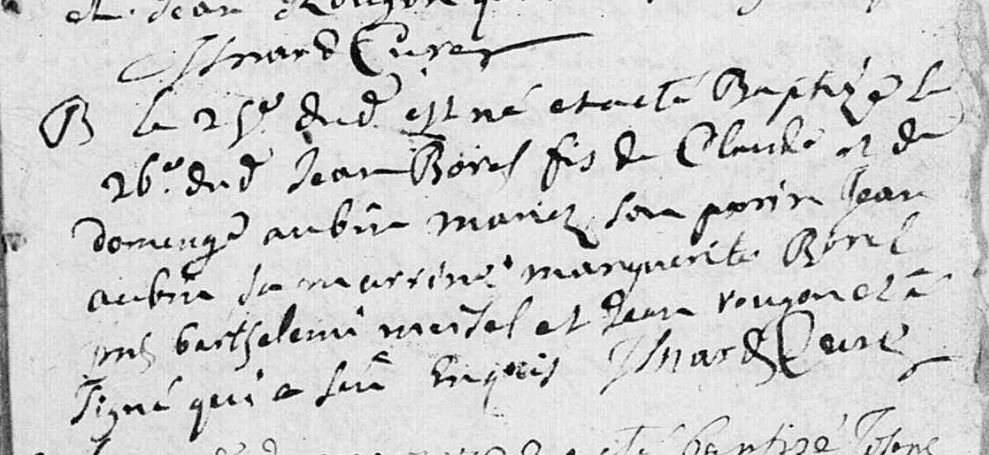 et Jean Rougon
Isnard Curé
B le 25e dud est né et a eté Baptizé le
26e dud Jean Borel fis de Claude et de
domenge aubin mariez son parin Jean
aubin sa marrine marguerite Borel
pnts barthelemi martel et Jean rougon et a
signé qui a seu Enquis Isnard Curé
eté baptizé